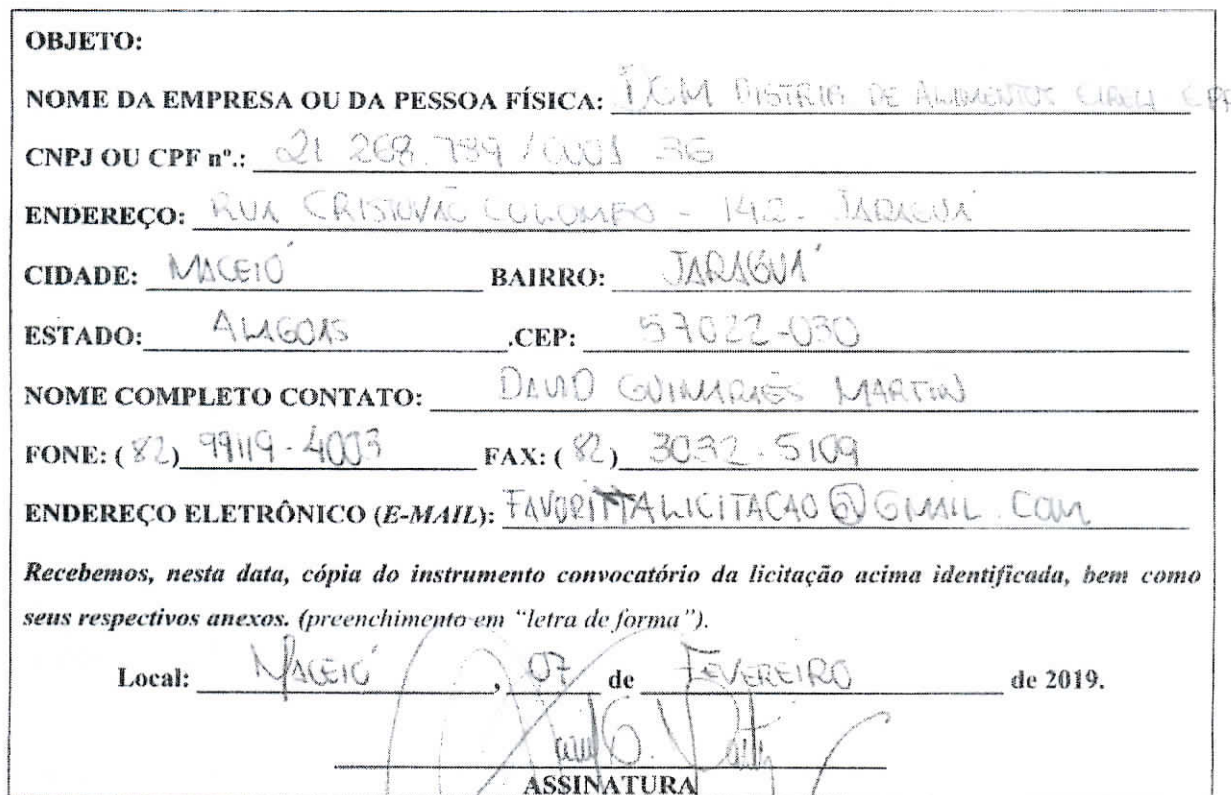 OBJETO:
NOME DA EMPRESA OU DA PESSOA FÍSICA: DISTRIB DE ALIMENTOS EIRELI EPP
CNPJ OU CPF nº.: 21 268.789 / 0001 36
ENDEREÇO: RUA CRISTOVÃO COLOMBO - 142 - JARAGUÁ
CIDADE: MACEIÓ BAIRRO: JARAGUÁ
ESTADO: ALAGOAS .CEP: 57022-030
NOME COMPLETO CONTATO: DAVID GUIMARÃES MARTIN
FONE: (82) 99119-4003 FAX: (82) 3032-5109
ENDEREÇO ELETRÔNICO (E-MAIL): FAVORITTALICITACAO@GMAIL.COM
Recebemos, nesta data, cópia do instrumento convocatório da licitação acima identificada, bem como
seus respectivos anexos. (preenchimento em "letra de forma").
Local: MACEIÓ, 07 de FEVEREIRO de 2019.
ASSINATURA